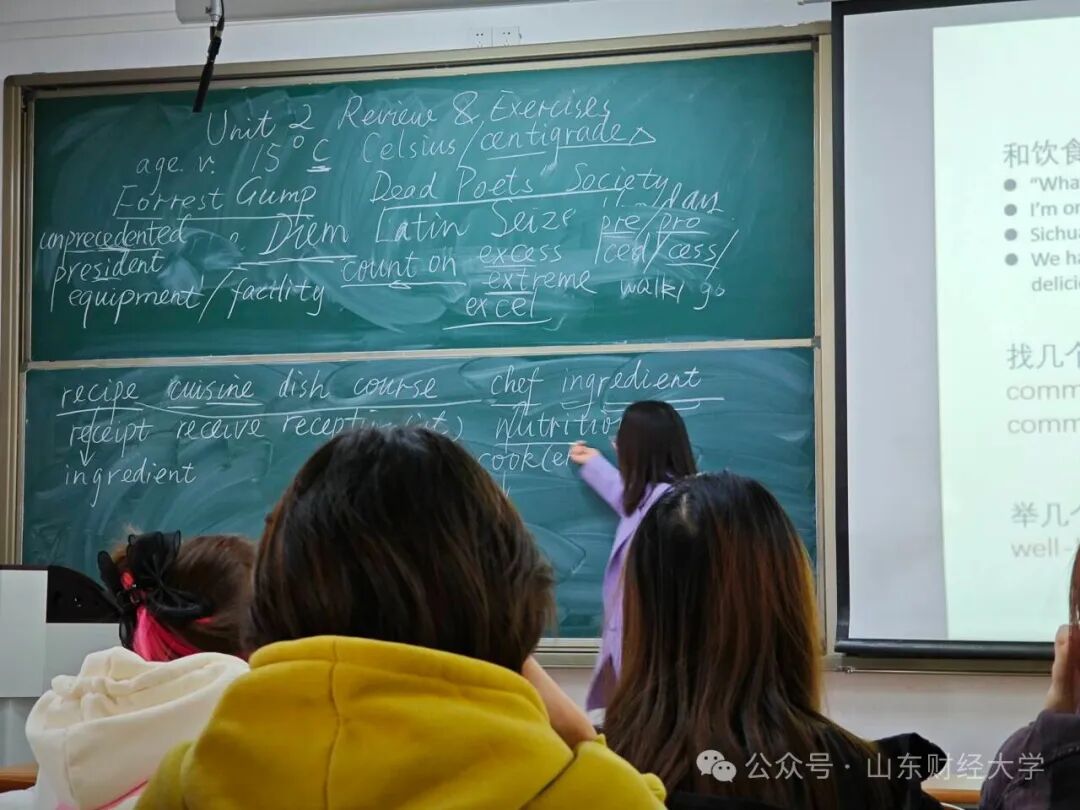 Unit 2 Review & Exercises
age. v. 15°C Celsius/centigrade
Forrest Gump Dead Poets Society
unprecedented Diem Latin Seize days
president count on excess pre pro ced/cess/
equipment/facility extreme walk go
excel
recipe cuisine dish course chef ingredient
receipt receive
ingredient
cook
和饮食
"Wha
I'm or
Sichua
We ha
delicio
找几个
comm
comm
举几个
well-
公众号·山东财经大学